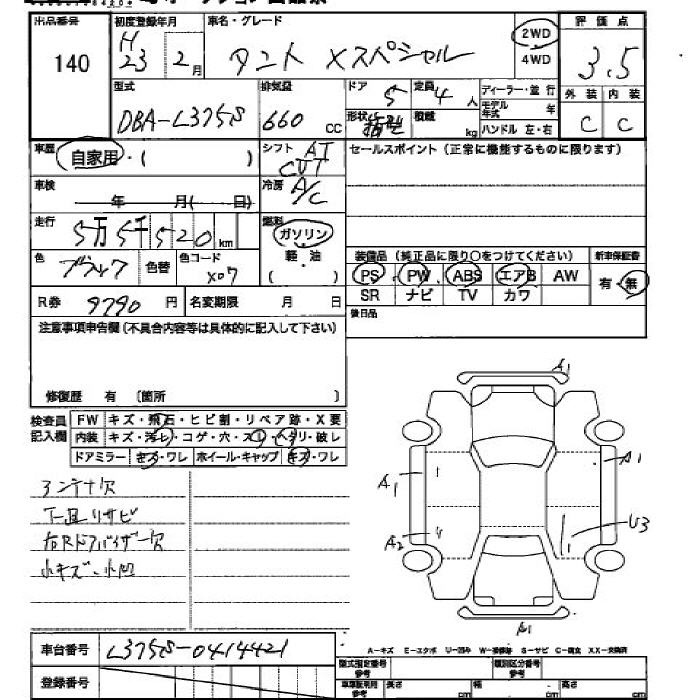 出品番号 初度登録年月 車名・グレード 評価点
140 H 23 2月 タント Xスペシャル 2WD 4WD 3.5
型式 排気量 ドア 定員 ディーラー・並行 外装 内装
DBA-L375S 660 CC 5 4人 モデル年式 年 C C
形状 箱型 積載 kg ハンドル 左・右
車歴 自家用・( ) シフト AT CVT セールスポイント (正常に機能するものに限ります)
車検 年 月( 日) 冷房 A/C
走行 5万5千520km 燃料 ガソリン
軽・油
( )
色 ブラック 色替 色コード X07
装備品 (純正品に限り○をつけてください) 新車保証書
PS PW ABS エアB AW 有・無
SR ナビ TV カワ
R券 9790円 名変期限 月 日 後日品
注意事項申告欄 (不具合内容等は具体的に記入して下さい)
修復歴 有 [箇所 ]
検査員記入欄 FW キズ・飛石・ヒビ割・リペア跡・X要
内装 キズ・汚レ・コゲ・穴・スレ・ヘタリ・破レ
ドアミラー キズ・ワレ ホイール・キャップ キズ・ワレ
アンテナ欠
下廻リサビ
右Rドアバイザー欠
小キズ・小凹
A1
A1
A1
A2
U3
A1
車台番号 L375S-0414421
A-キズ E-エクボ U-凹み W-補修跡 S-サビ C-腐食 XX-交換済
登録番号 型式指定番号 参考 類別区分番号 参考
車庫証明用 参考 長さ cm 幅 cm 高さ cm